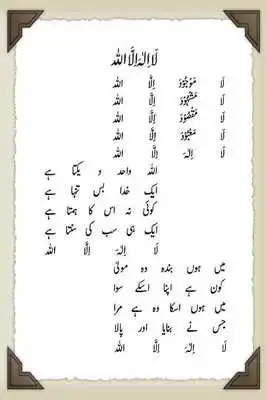 لَا اِلٰهَ اِلَّا اللہ
لَا مَوْجُوْدَ اِلَّا اللہ
لَا مَشْہُوْدَ اِلَّا اللہ
لَا مَقْصُوْدَ اِلَّا اللہ
لَا مَعْبُوْدَ اِلَّا اللہ
لَا اِلٰہَ اِلَّا اللہ
اللہ واحد و یکتا ہے
ایک خدا بس تنہا ہے
کوئی نہ اس کا ہمتا ہے
ایک ہی سب کی سنتا ہے
لَا اِلٰہَ اِلَّا اللہ
میں ہوں بندہ وہ مولیٰ
کون ہے اپنا اسکے سوا
میں ہوں اسکا وہ ہے مرا
جس نے بنایا اور پالا
لَا اِلٰہَ اِلَّا اللہ